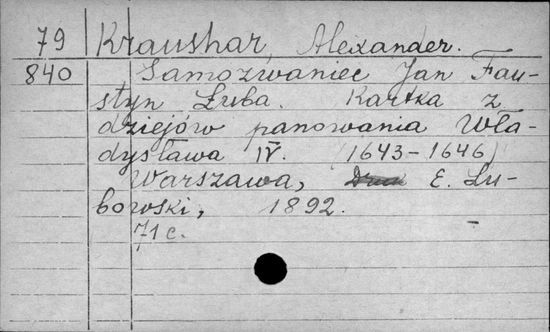 79 Kraushar, Alexander.
840 Samozwaniec Jan Fau-
styn Łuba. Kartka z
dziejów panowania Wła-
dysława IV. (1643-1646)
Warszawa, Druk E. Lu-
bowski, 1892.
71 c.